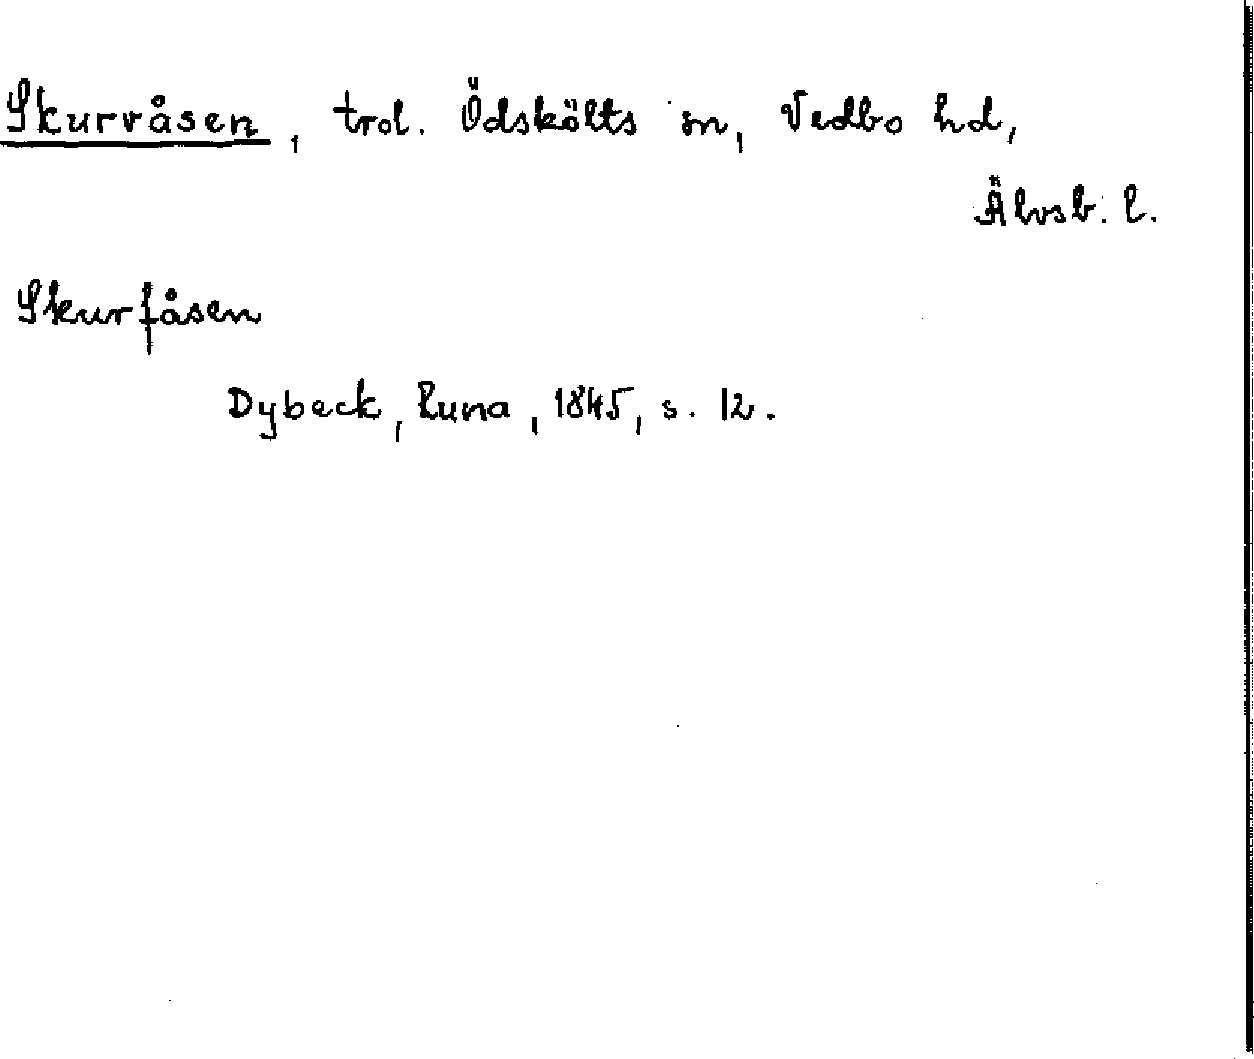 Skurvåsen, trol. Ödskölts sn, Vedbo hd,
Älvsb. l.
Skurfåsen
Dybeck, Runa, 1845, s. 12.